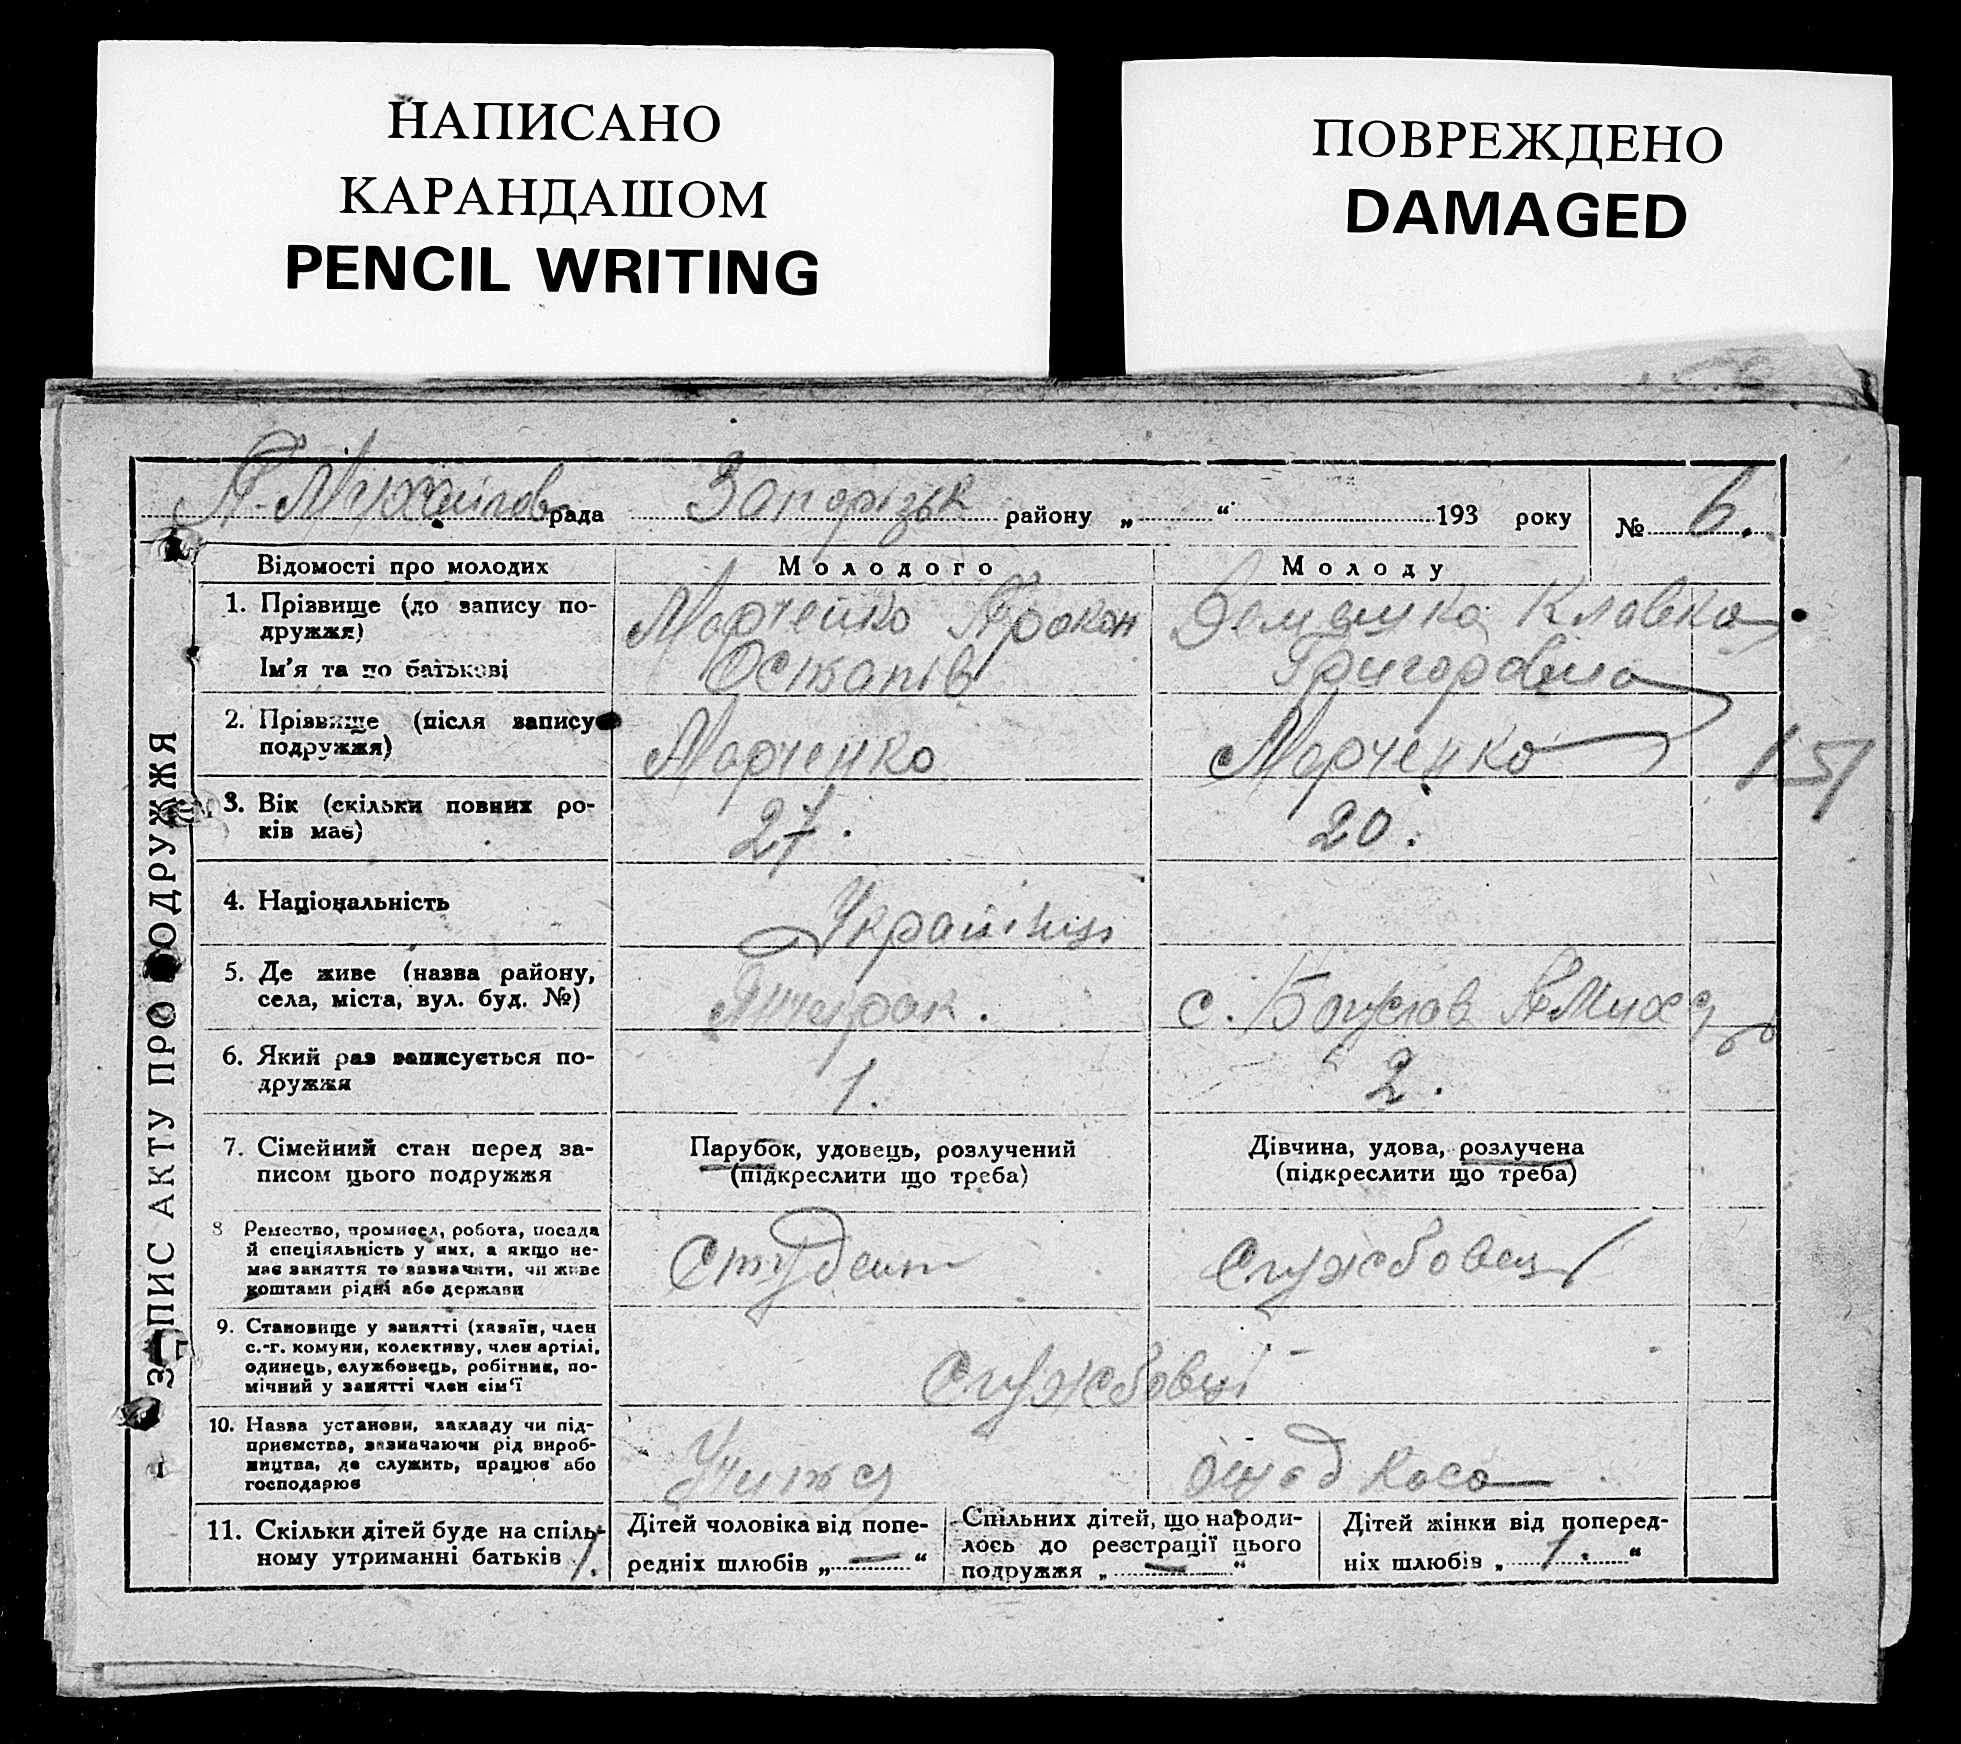 НАПИСАНО
КАРАНДАШОМ
PENCIL WRITING
ПОВРЕЖДЕНО
DAMAGED
рада Запорізьк району „ “ 193 року № 6.
ЗАПИС АКТУ ПРО ПОДРУЖЖЯ
Відомості про молодих Молодого Молоду
1. Прізвище (до запису по-
дружжя)
Ім'я та по батькові
Марченко Прокоп
Остапів
Клавка
Григоровна
2. Прізвище (після запису
подружжя)
Марченко
Марченко
151
3. Вік (скільки повних ро-
ків має)
27.
20.
4. Національність
Українці
5. Де живе (назва району,
села, міста, вул. буд. №)
Янчекрак.
с. Богуслав
6. Який раз записується по-
дружжя
1.
2.
7. Сімейний стан перед за-
писом цього подружжя
Парубок, удовець, розлучений
(підкреслити що треба)
Дівчина, удова, розлучена
(підкреслити що треба)
8 Ремество, промисел, робота, посада
й спеціяльність у них, а якщо не-
має заняття то зазначити, чи живе
коштами рідні або держави
Студент
Службовець
9. Становище у занятті (хазяїн, член
с.-г. комуни, колективу, член артілі,
одинець, службовець, робітник, по-
мічний у занятті член сім'ї
Службовці
10. Назва установи, закладу чи під-
приємства, зазначаючи рід вироб-
ництва, де служить, працює або
господарює
Учится
ощадкаса
11. Скільки дітей буде на спіль-
ному утриманні батьків 1.
Дітей чоловіка від попе-
редніх шлюбів „ — “
Спільних дітей, що народи-
лось до реєстрації цього
подружжя „ — “
Дітей жінки від поперед-
ніх шлюбів „ 1. “